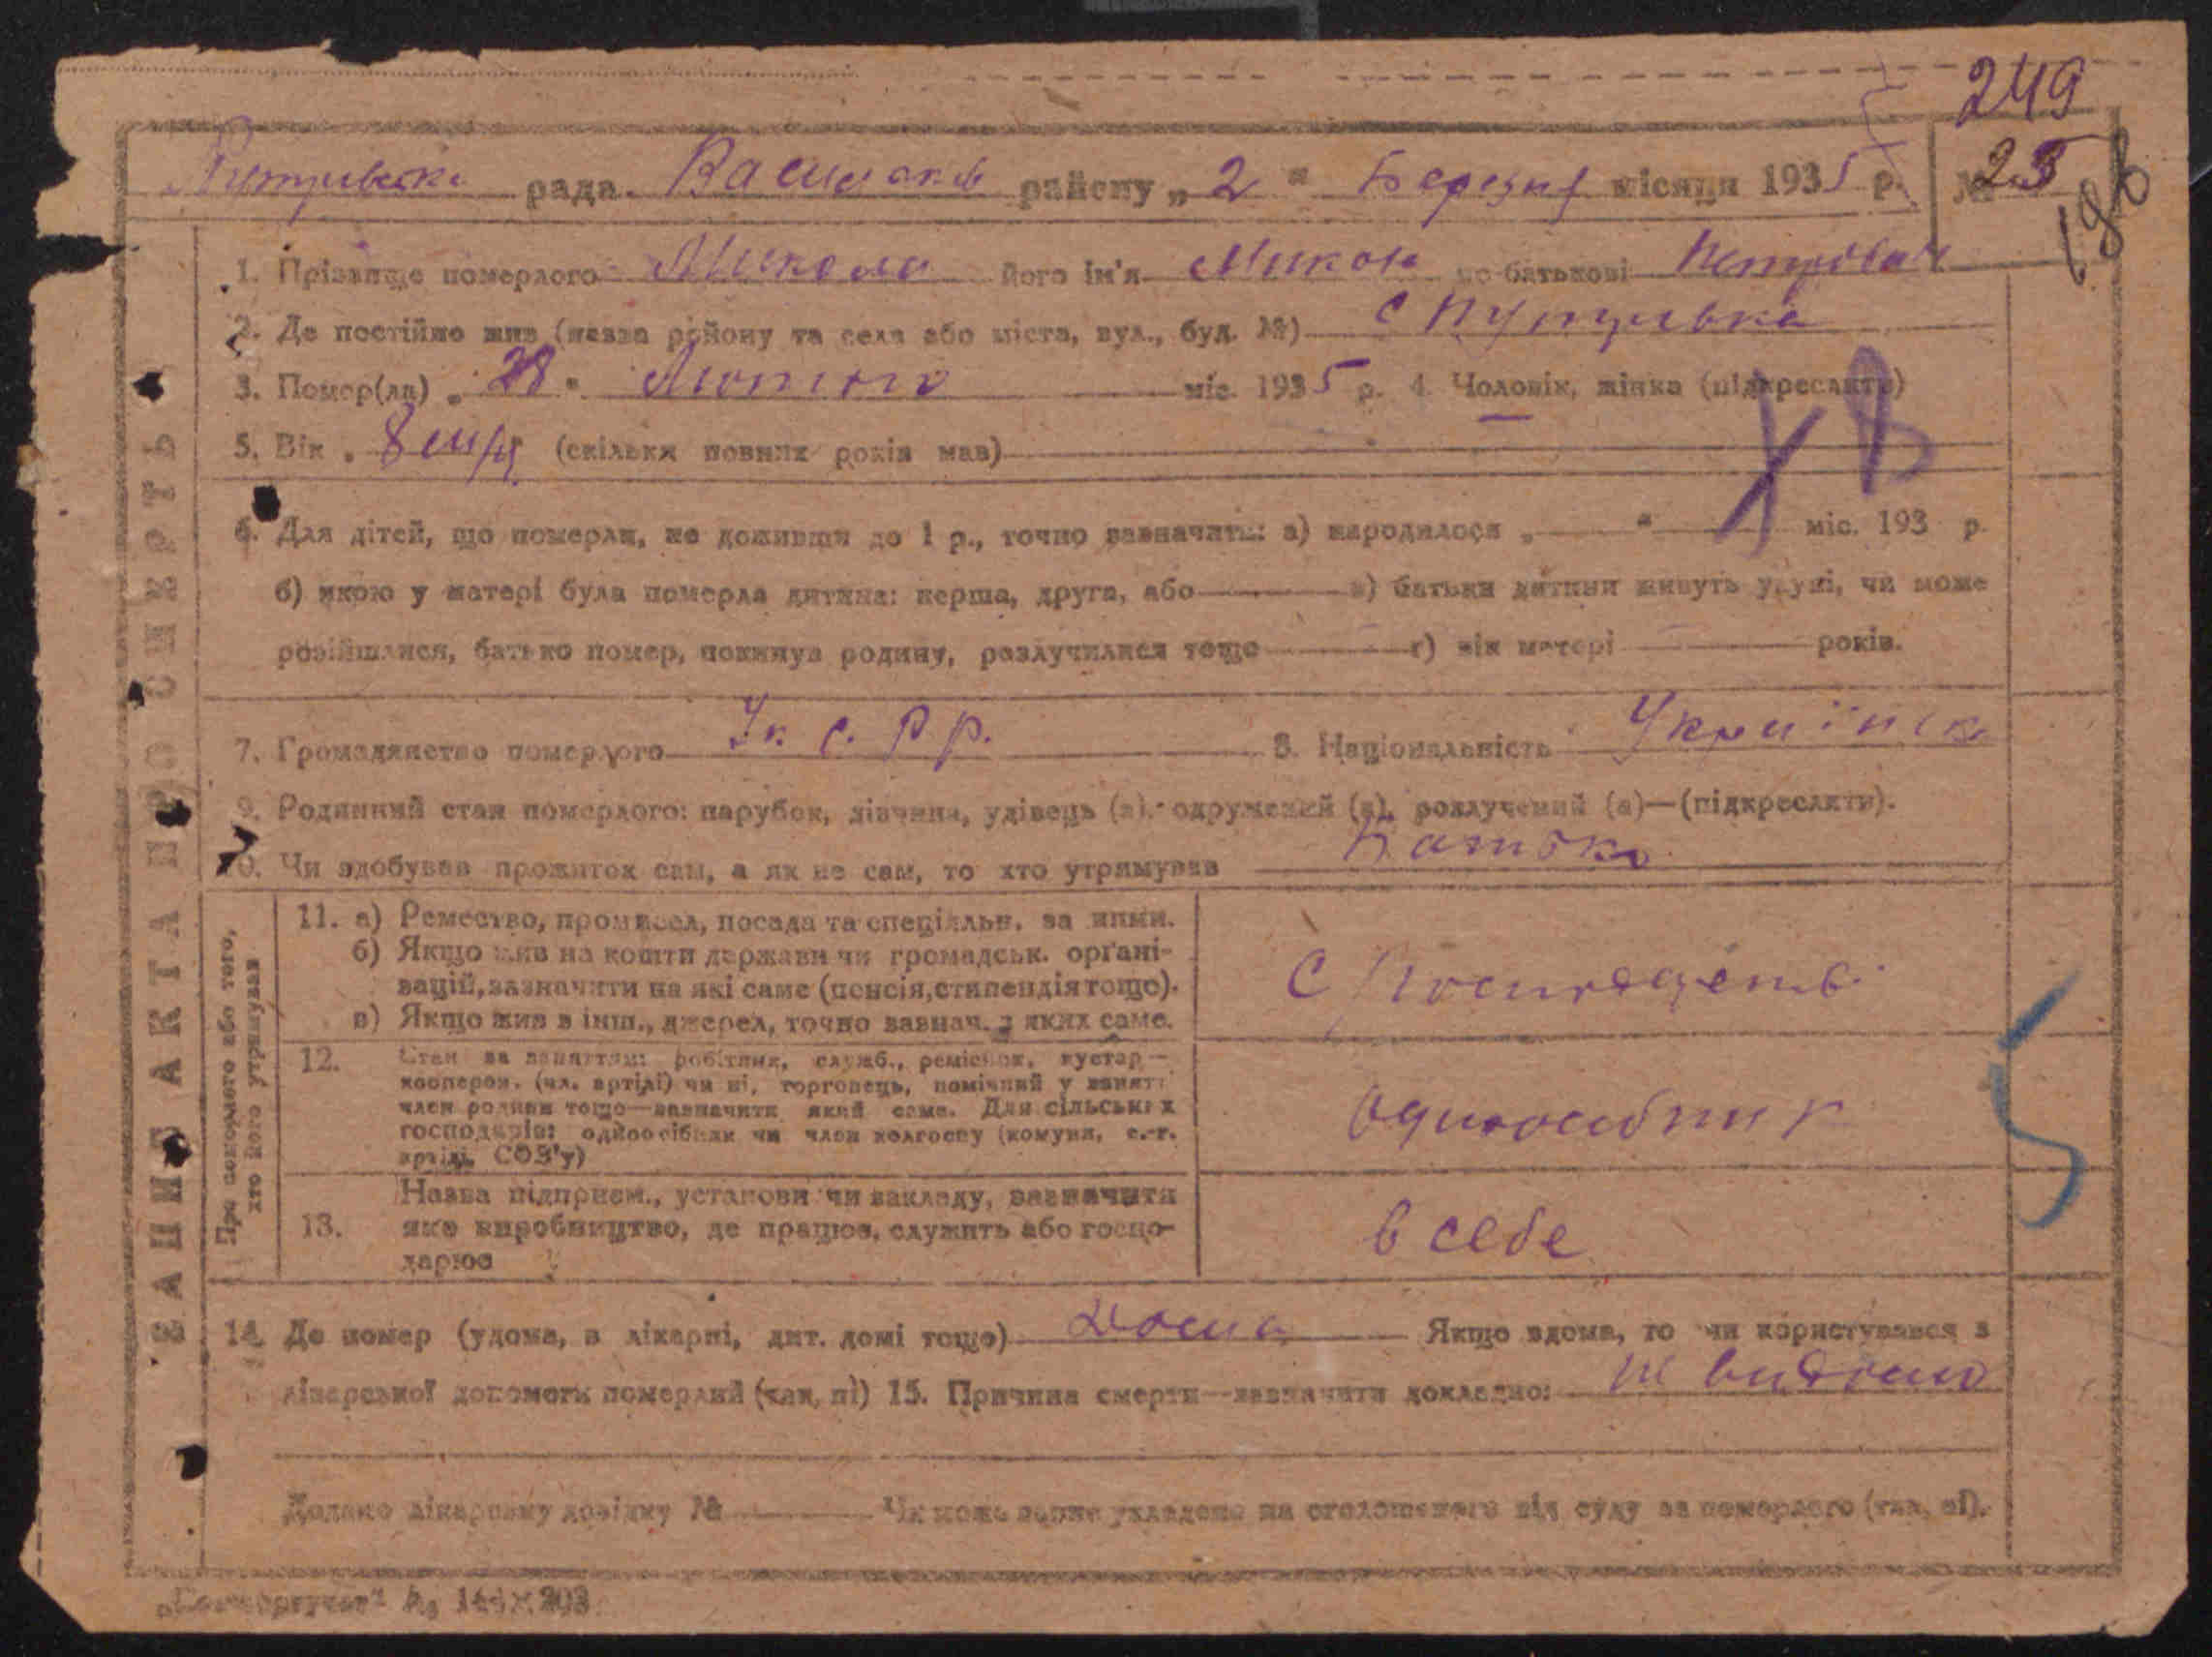 249
рада Васильків району „ 2 " Березня місяця 1935 р. № 23
198
1. Прізвище померлого Микола його ім'я Микола по батькові Петрович
2. Де постійно жив (назва району та села або міста, вул., буд. №) с Путрівка
3. Помер(ла) „ 28 " Лютого міс. 1935 р. 4. Чоловік, жінка (підкреслити)
5. Вік „ 8 (скільки повних років мав)
6. Для дітей, що померли, не доживши до 1 р., точно зазначить: а) народилося „ " міс. 193 р.
б) якою у матері була померла дитина: перша, друга, або в) батьки дитини живуть укупі, чи може
розійшлися, батько помер, покинув родину, розлучилися тощо г) вік матері років.
7. Громадянство померлого Ук с. Р р. 8. Національність Україніск
9. Родинний стан померлого: парубок, дівчина, удівець (а), одружений (а), розлучений (а)—(підкреслити).
10. Чи здобував прожиток сам, а як не сам, то хто утримував Батько
Про померлого або того, хто його утримував
11. а) Ремество, промисел, посада та спеціяльн. за ними.
б) Якщо жив на кошти держави чи громадськ. орґані-
зацій, зазначити на які саме (пенсія, стипендія тощо).
в) Якщо жив з інш., джерел, точно зазнач. з яких саме.
12. Стан за заняттям: робітник, служб., ремісник, кустар—
кооперов. (чл. артілі) чи ні, торговець, помічний у занятті
член родини тощо—зазначити який саме. Для сільських
господарів: одноосібник чи член колгоспу (комуни, с.-г.
артілі, СОЗ'у)
одноосібник
13. Назва підприєм., установи чи закладу, зазначити
яке виробництво, де працює, служить або госпо-
дарює
в себе
14. Де помер (удома, в лікарні, дит. домі тощо) дома Якщо вдома, то чи користувався з
лікарської допомоги померлий (так, ні) 15. Причина смерти—зазначити докладно: не видомо
Додано лікарську довідку №
ЗАПИС АКТА ПРО СМЕРТЬ